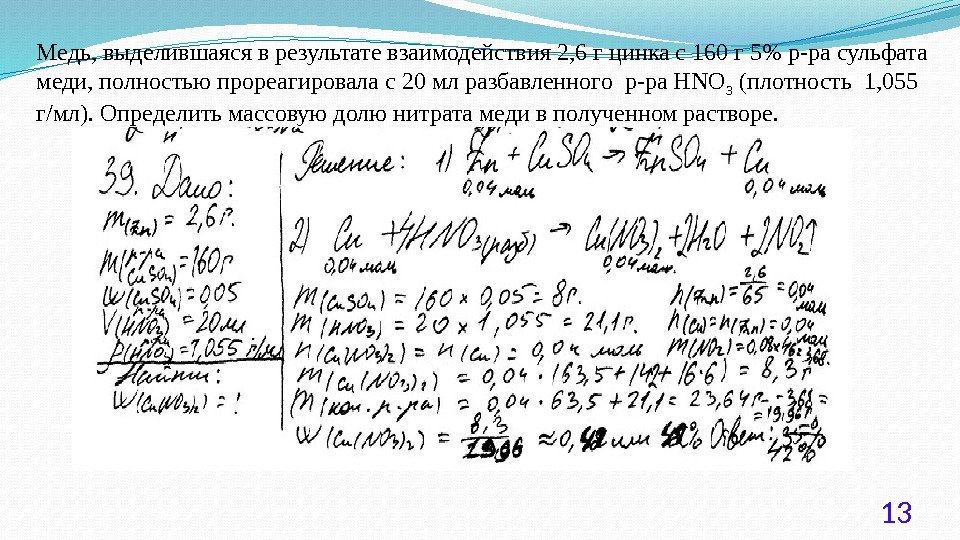 Медь, выделившаяся в результате взаимодействия 2,6 г цинка с 160 г 5% р-ра сульфата
меди, полностью прореагировала с 20 мл разбавленного р-ра HNO3 (плотность 1,055
г/мл). Определить массовую долю нитрата меди в полученном растворе.
39. Дано:
m(Zn) = 2,6 г.
m(р-ра CuSO4) = 160 г
W(CuSO4) = 0,05
V(р-ра HNO3) = 20 мл
ρ(р-ра HNO3) = 1,055 г/мл
Найти:
W(Cu(NO3)2) = ?
Решение: 1) Zn + CuSO4 → ZnSO4 + Cu
0,04 моль 0,04 моль
2) Cu + 4HNO3(разб) → Cu(NO3)2 + 2H2O + 2NO2↑
0,04 моль 0,04 моль
m(CuSO4) = 160 × 0,05 = 8 г. n(Zn) = 2,6/65 = 0,04 моль
m(HNO3) = 20 × 1,055 = 21,1 г. n(Cu) = n(Zn) = 0,04 моль
n(Cu(NO3)2) = n(Cu) = 0,04 моль m(NO2) = 0,08×46 = 3,68г.
m(Cu(NO3)2) = 0,04 · (63,5 + 14·2 + 16·6) = 8,3 г
m(кон. р-ра) = 0,04 · 63,5 + 21,1 = 23,64 г - 3,68 =
= 19,96 г
W(Cu(NO3)2) = 8,3/19,96 ≈ 0,42 или 42% Ответ:
42%
13